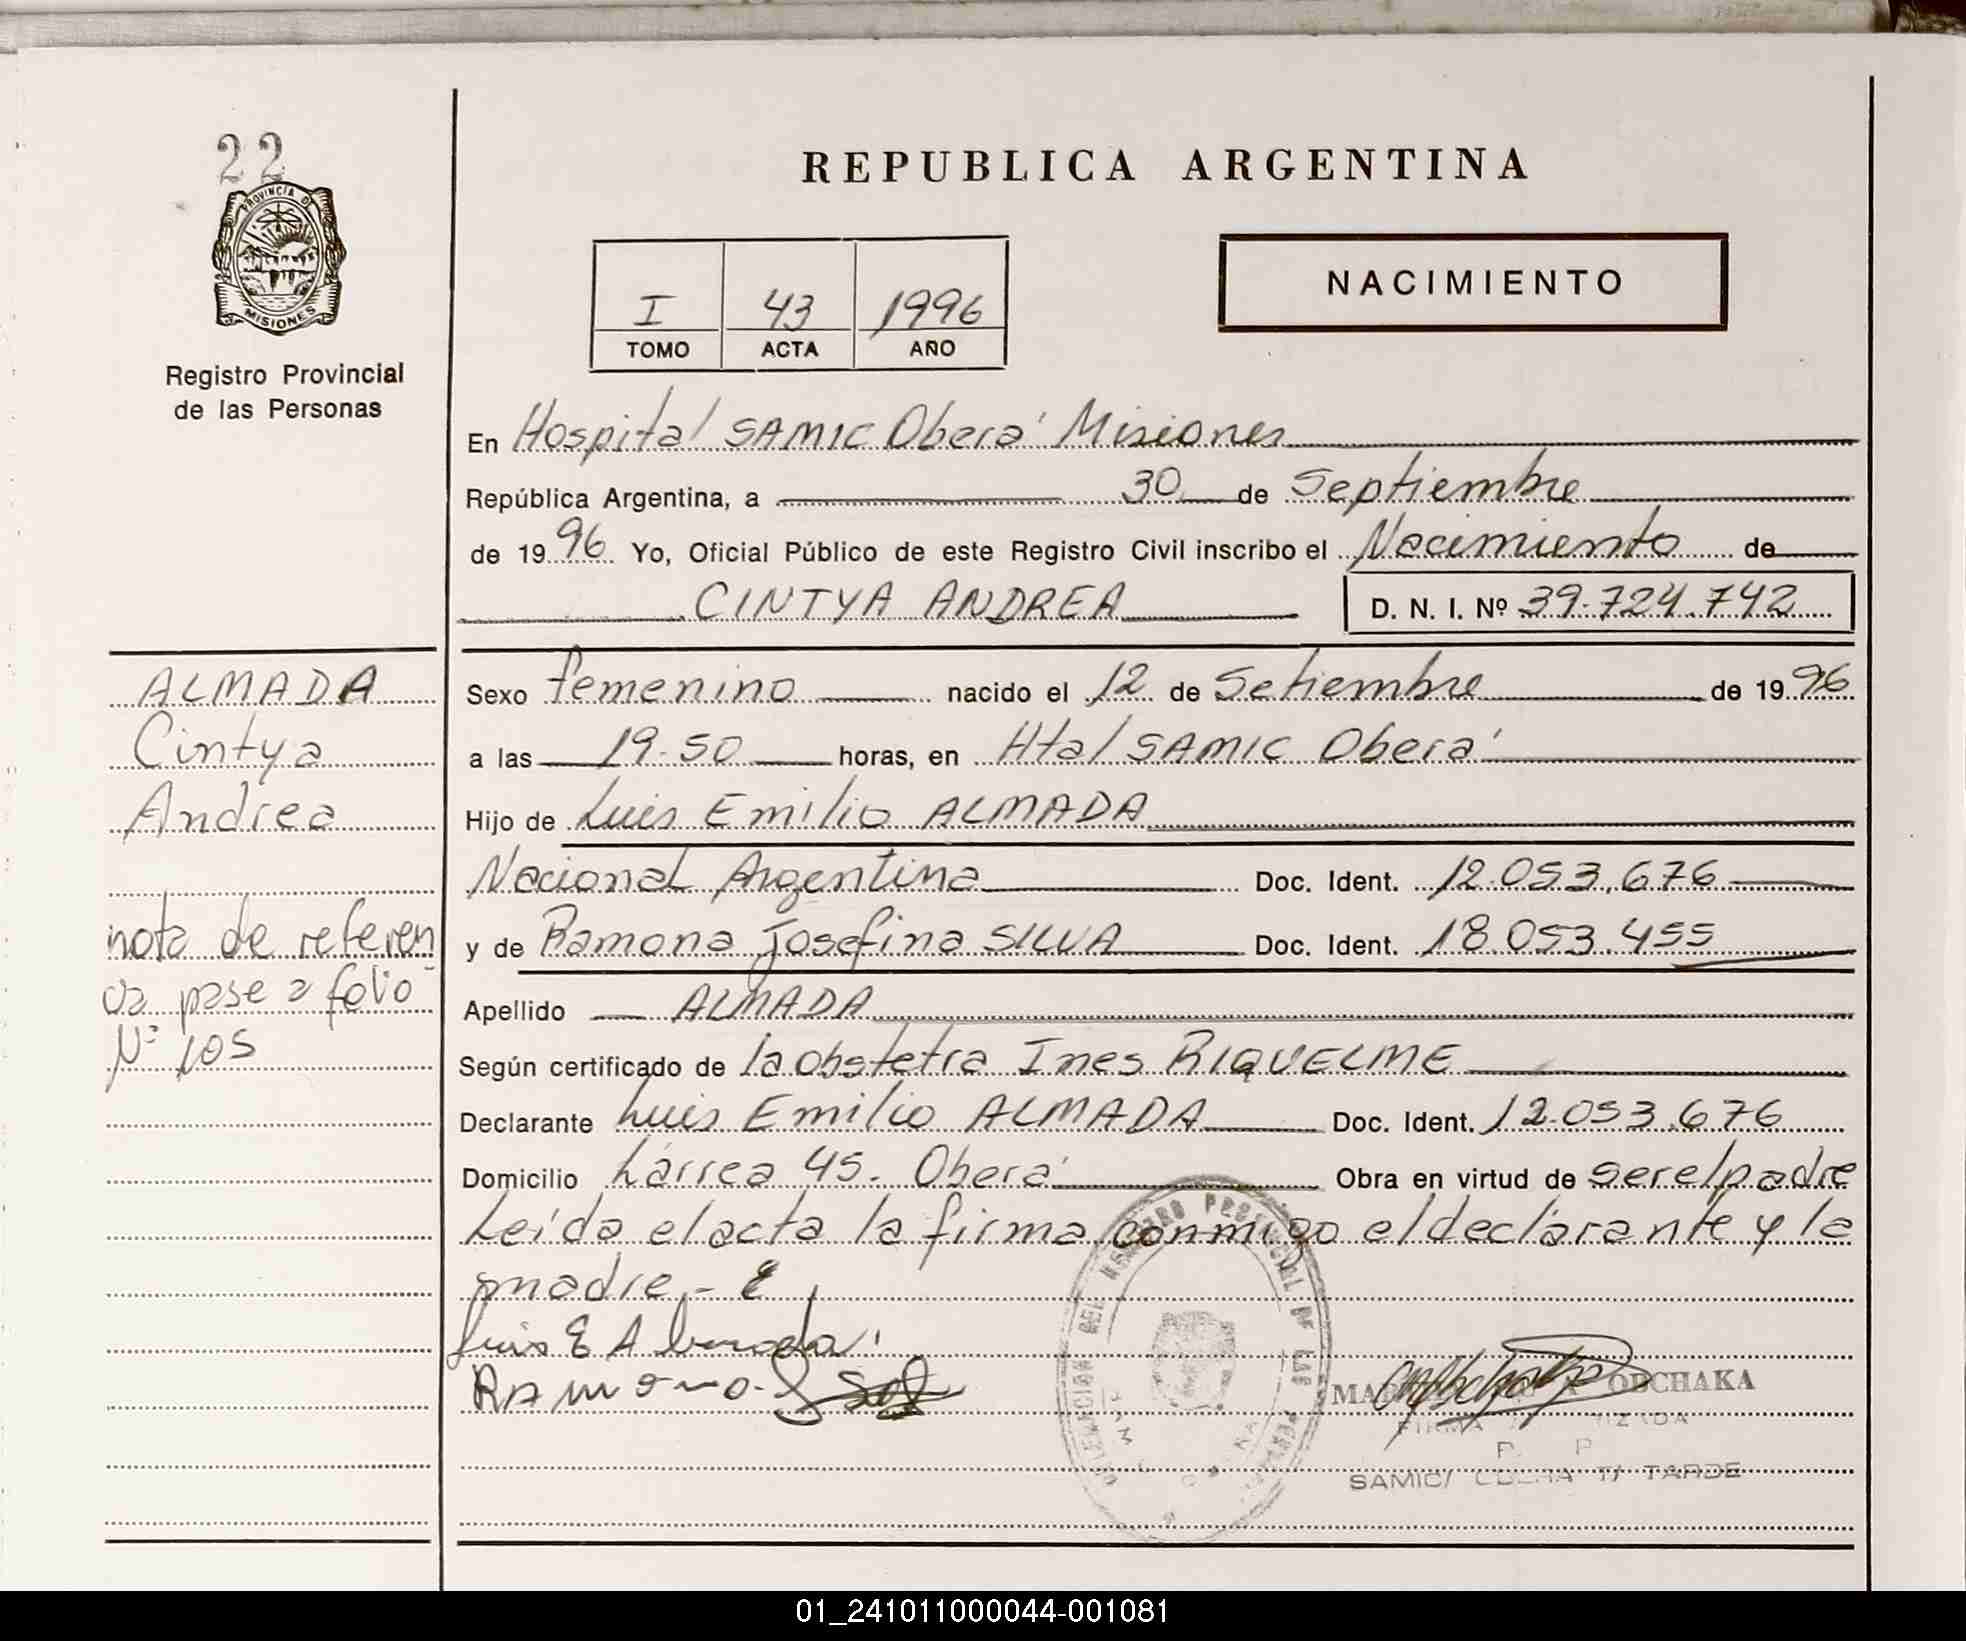 22
PROVINCIA DE
MISIONES
Registro Provincial
de las Personas
REPUBLICA ARGENTINA
NACIMIENTO
I 43 1996
TOMO ACTA AÑO
En Hospital SAMIC Oberá Misiones
República Argentina, a 30 de Septiembre
de 1996 Yo, Oficial Público de este Registro Civil inscribo el Nacimiento de
CINTYA ANDREA D. N. I. Nº 39.724.742
Sexo femenino nacido el 12 de Setiembre de 1996
a las 19.50 horas, en Htal SAMIC Oberá
Hijo de Luis Emilio ALMADA
Nacional Argentina Doc. Ident. 12.053.676
y de Ramona Josefina SILVA Doc. Ident. 18.053.455
Apellido ALMADA
Según certificado de la obstetra Ines RIQUELME
Declarante Luis Emilio ALMADA Doc. Ident. 12.053.676
Domicilio Lárrea 45. Oberá Obra en virtud de ser el padre
Leída el acta la firma conmigo el declarante y la
madre.-
Luis E Almada
Ramona
OBCHAKA
FIRMA
SAMIC/ T/ TARDE
DELEGACION DEL REGISTRO PROVINCIAL DE LAS
ALMADA
Cintya
Andrea
nota de referen
cia pase a folio
Nº 105
01_241011000044-001081